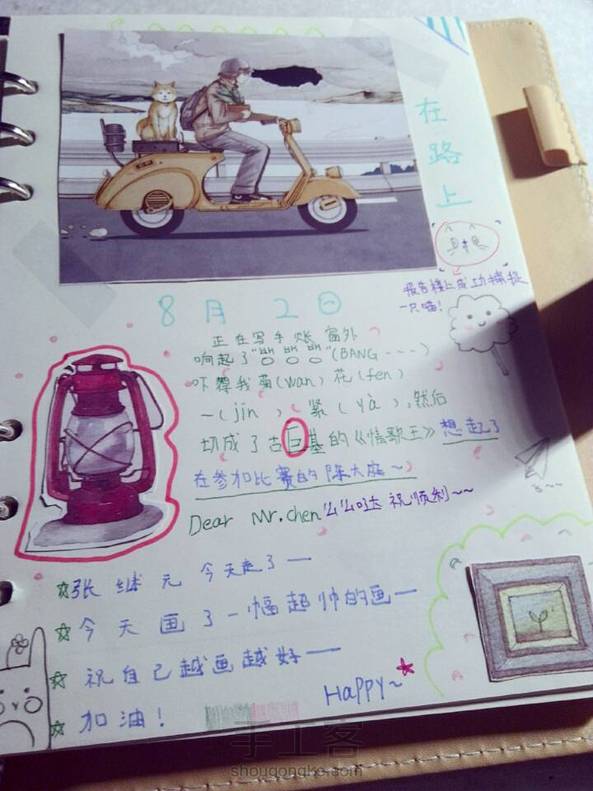 在路上
8月2日
正在写手账 窗外
响起了"빵빵빵"(BANG----)
吓得我菊(wan)花(fen)
一(jin)紧(yà),然后
切成了古巨基的《情歌王》想起了
在参加比赛的陈大庭~
Dear Mr.chen 么么哒 祝顺利~~
☆张继元 今天走了一
☆今天画了一幅超帅的画一
☆祝自己越画越好——
☆加油!
HaPPY~
手工客
shougongke.com